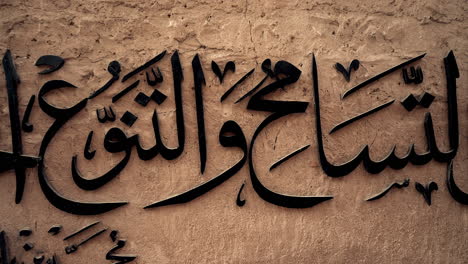 لتسامح والتنوع